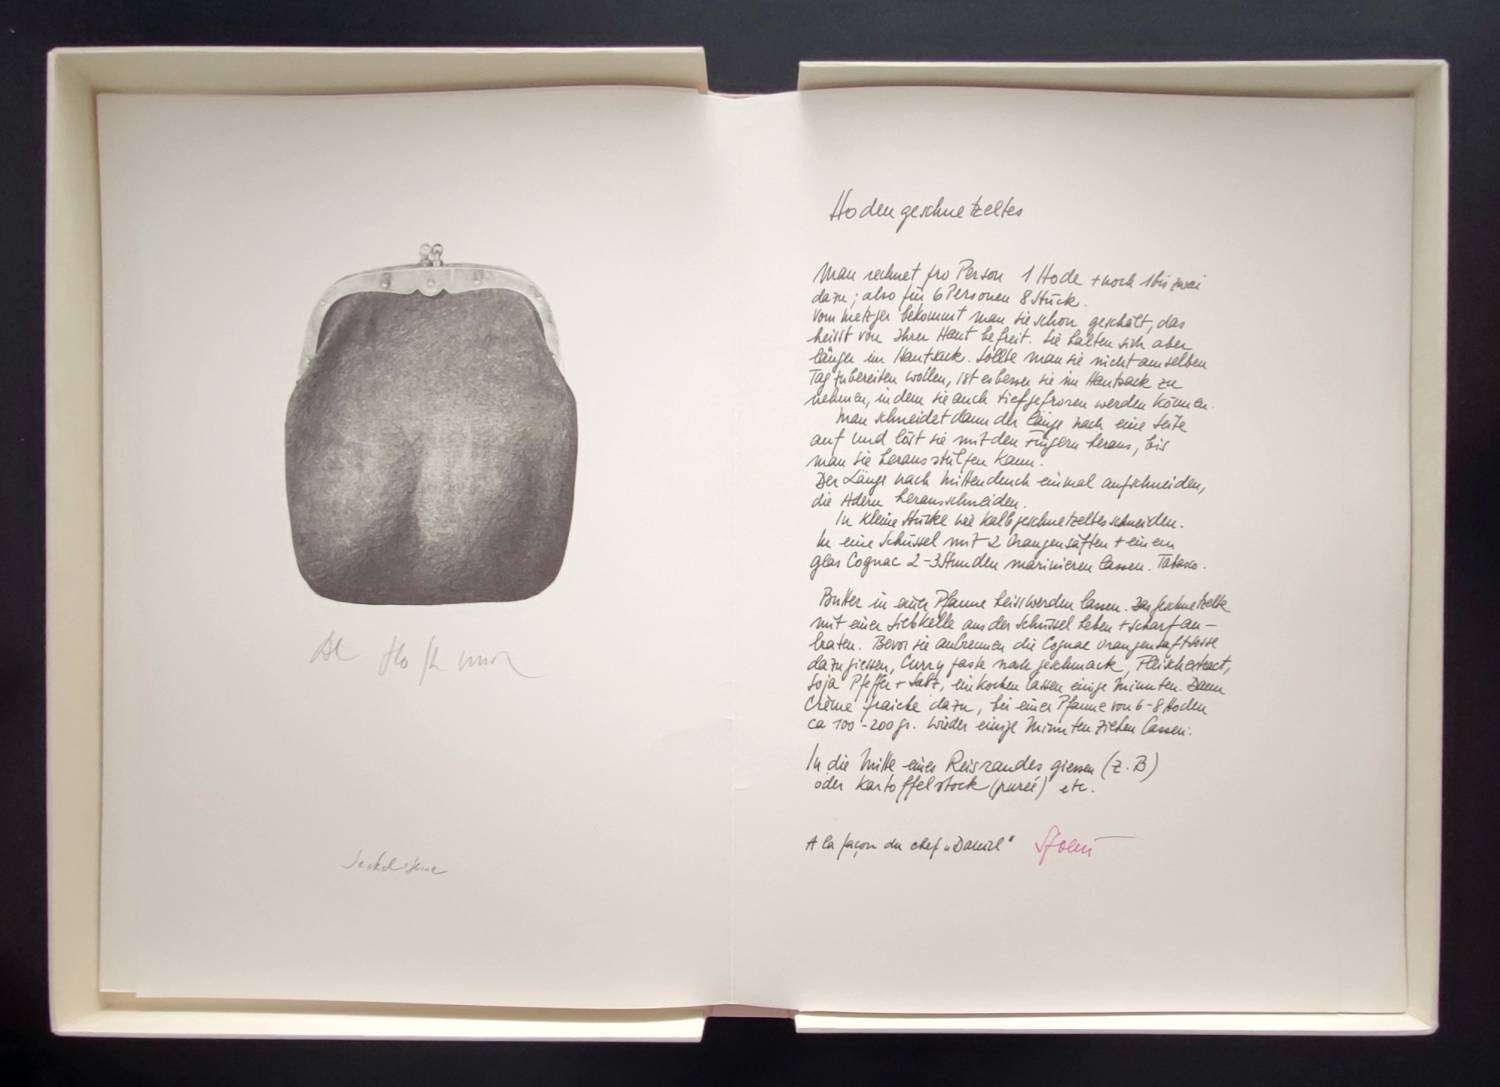 Hodengeschnetzeltes
Man rechnet pro Person 1 Hode + noch 1 bis zwei
dazu; also für 6 Personen 8 Stück.
vom Metzger bekommt man sie schon geschält, das
heisst von ihrer Haut befreit. Sie halten sich aber
länger im Hautsack. Sollte man sie nicht am selben
Tag zubereiten wollen, ist es besser sie im Hautsack zu
nehmen, in dem sie auch tiefgefroren werden können.
Man schneidet dann der länge nach eine Seite
auf und löst sie mit den Fingern heraus, bis
man sie herausstülpen kann.
Der Länge nach mittendurch einmal aufschneiden,
die Adern herausschneiden.
In kleine Stücke wie Kalbgeschnetzeltes schneiden.
In eine Schüssel mit 2 Orangensäften + einem
glas Cognac 2-3 Stunden marinieren lassen. Tabasco.
Butter in einer Pfanne heiss werden lassen. Das geschnetzelte
mit einer Siebkelle aus der Schüssel heben + scharf an-
braten. Bevor sie anbrennen die Cognac Orangensaftsosse
dazugiessen, Curry paste nach geschmack, Fleischextract,
Soja Pfeffer + Salz, einkochen lassen einige Minuten. Dann
Crème fraiche dazu, bei einer Pfanne von 6-8 Hoden
ca 100-200 gr. Wieder einige Minuten ziehen lassen.
In die Mitte eines Reisrandes giessen (z.B)
oder Kartoffelstock (pureé) etc.
A la façon du chef "Daniel"